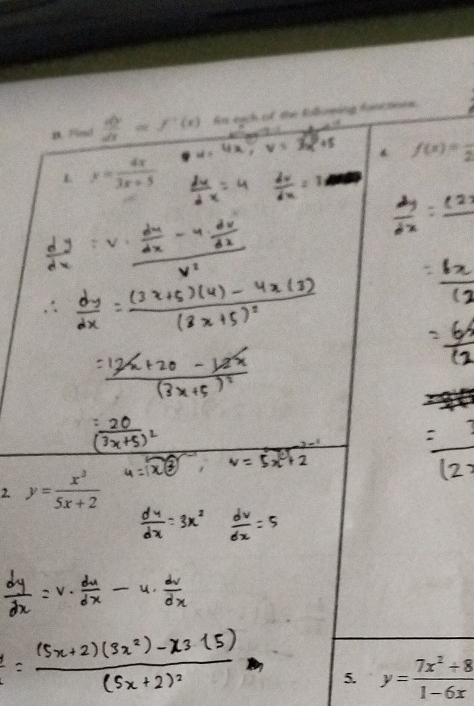 B. Find dy/dx = f'(x) for each of the following functions.
1. y = 4x/(3x+5)
u = 4x, v = 3x+5
du/dx = 4 dv/dx = 3
dy/dx = (v · du/dx − u · dv/dx)/v²
∴ dy/dx = ((3x+5)(4) − 4x(3))/(3x+5)²
= (12x+20 − 12x)/(3x+5)²
= 20/(3x+5)²
2. y = x³/(5x+2)
u = x³, v = 5x+2
du/dx = 3x² dv/dx = 5
dy/dx = v · du/dx − u · dv/dx
= ((5x+2)(3x²) − x3 (5))/(5x+2)²
f(x) =
dy/dx = (2
= 6x/(2
= 6/(2
= /(2
5. y = (7x²+8)/(1−6x)